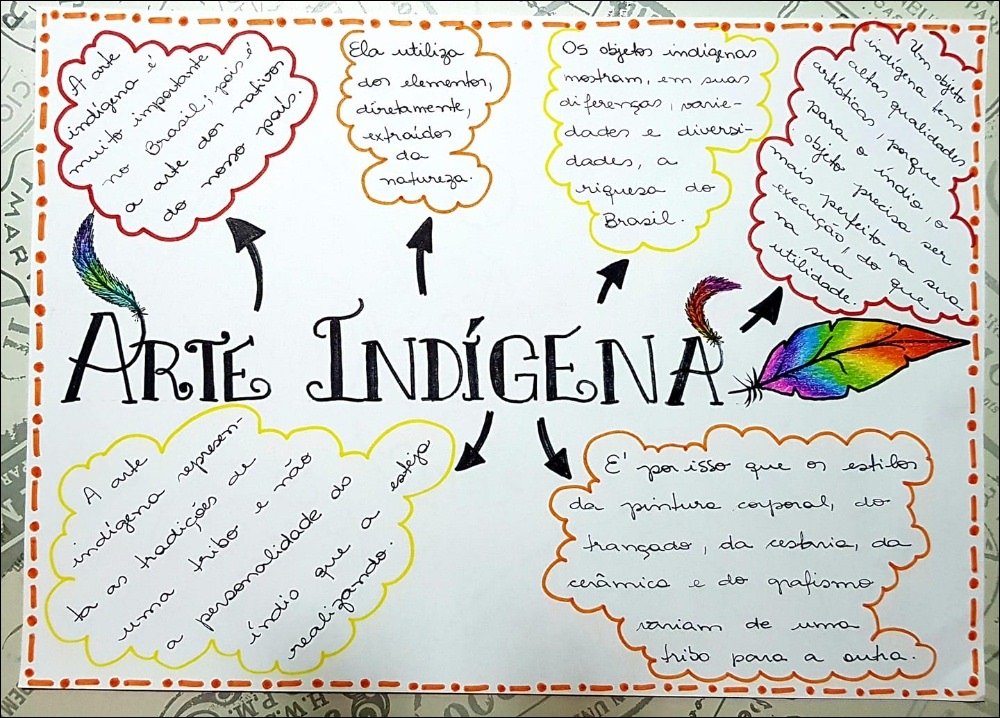 A arte
indígena é
muito importante
no Brasil; pois é
a arte dos nativos
do nosso país.
Ela utiliza
dos elementos,
diretamente,
extraídos
da
natureza.
Os objetos indígenas
mostram, em suas
diferenças, varie-
dades e diversi-
dades, a
riquesa do
Brasil.
Um objeto
indígena tem
altas qualidades
artísticas, porque
para o índio, o
objeto precisa ser
mais perfeito na sua
execução, do que
na sua
utilidade.
ARTE INDÍGENA
A arte
indígena represen-
ta as tradições de
uma tribo e não
a personalidade do
índio que a esteja
realizando.
E' por isso que os estilos
da pintura corporal, do
trançado, da cestaria, da
cerâmica e do grafismo
variam de uma
tribo para a outra.
TMAR
H.W.
P.M.